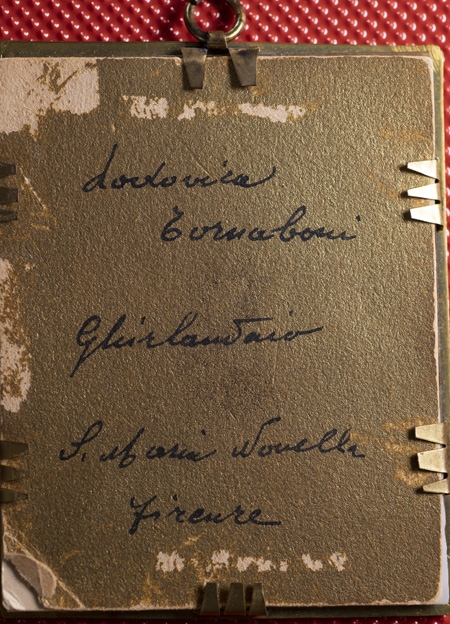 Lodovica
Tornaboni
Ghirlandaio
S. Maria Novella
Firenze